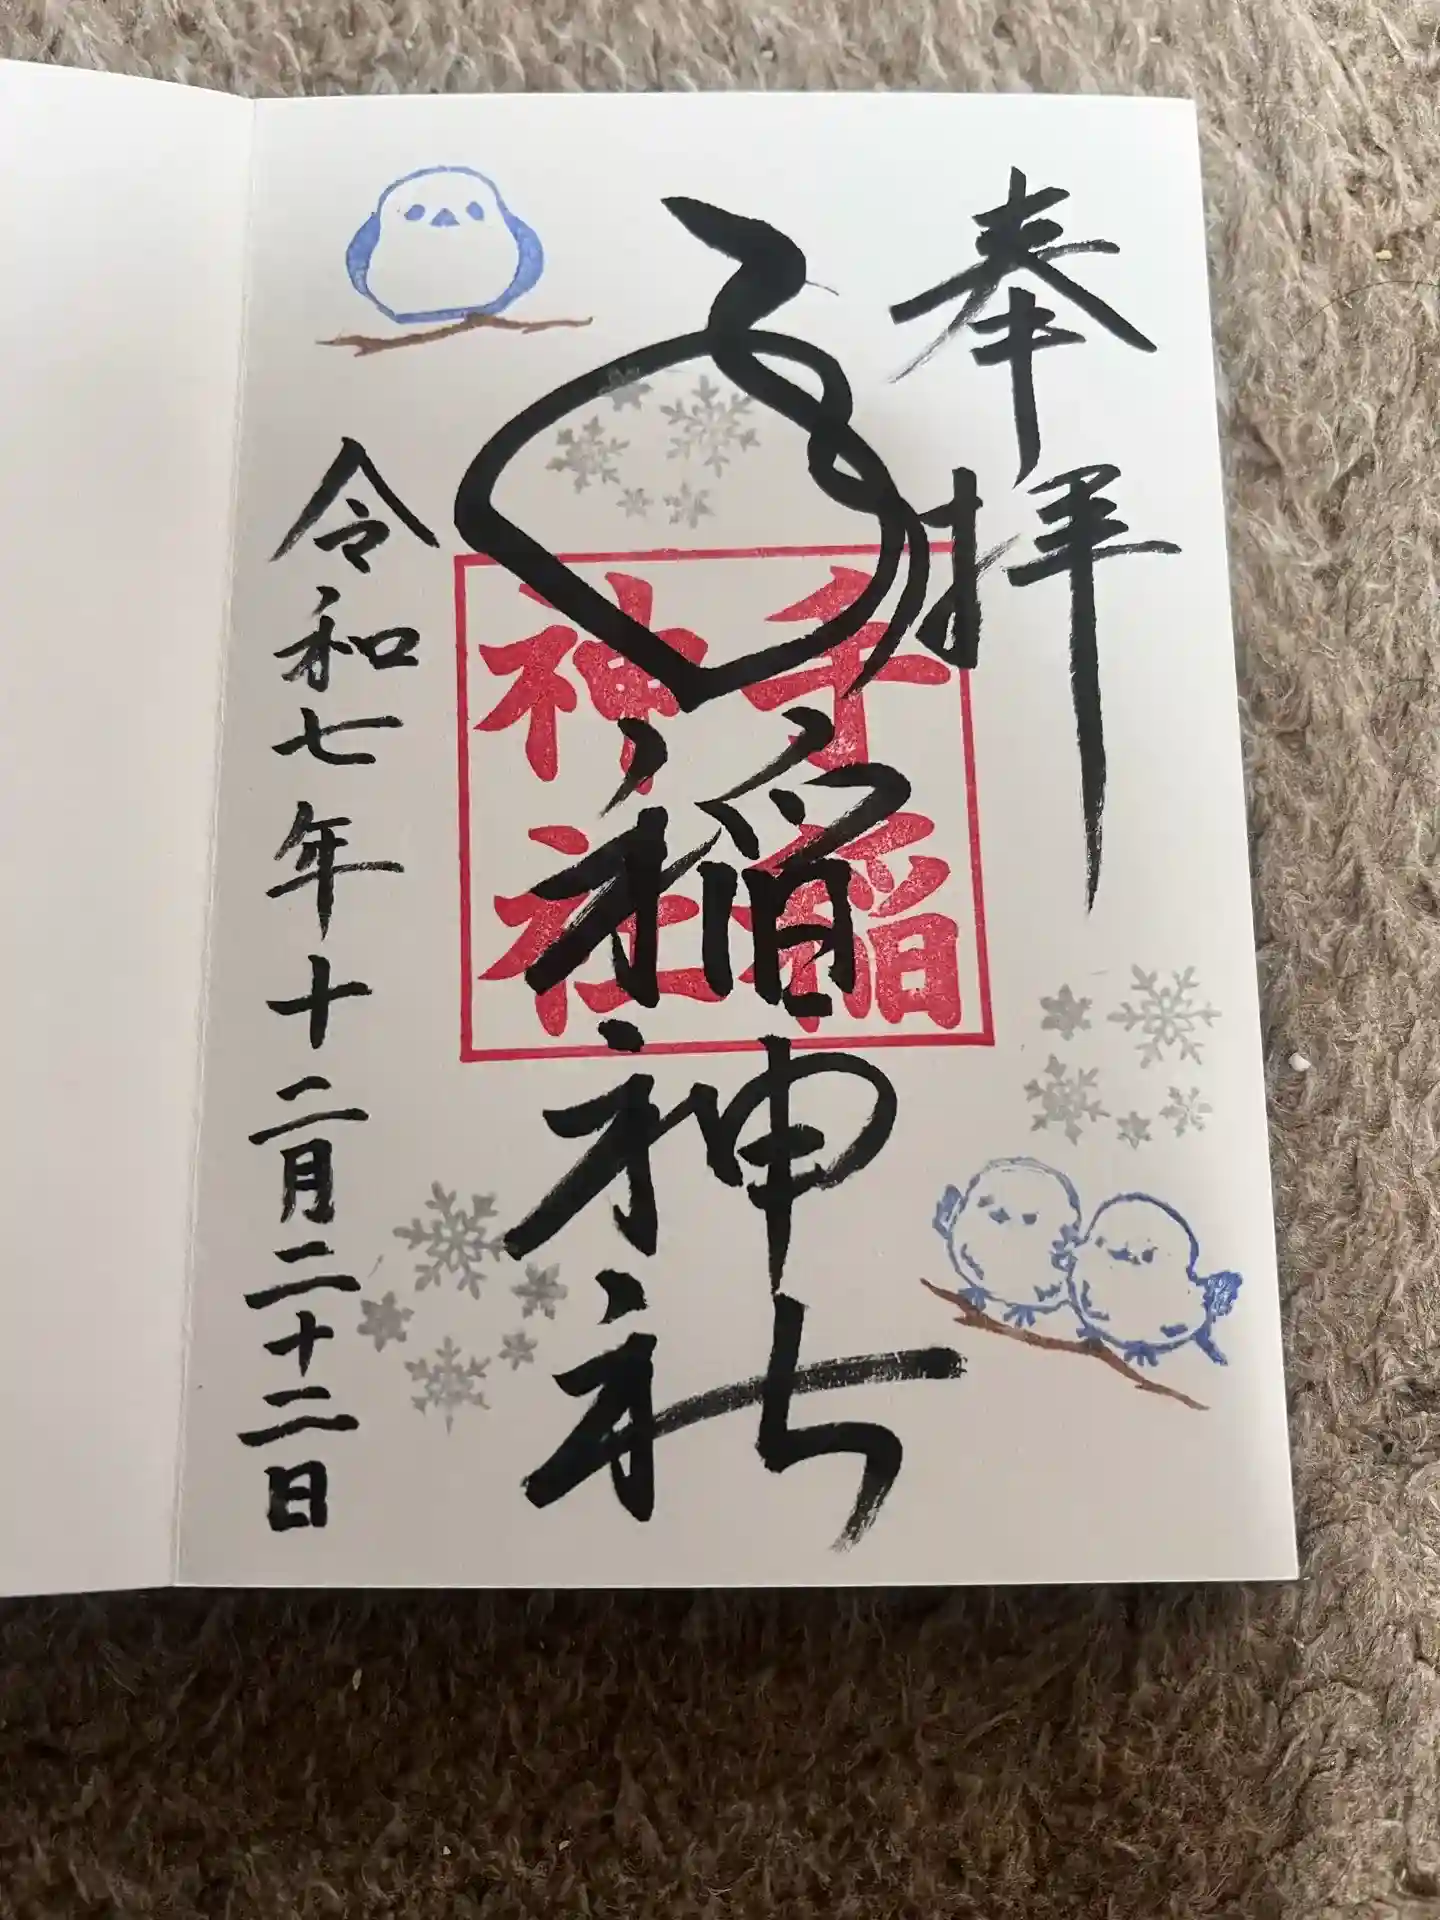 奉拝
手稲神社
手稲神社
令和七年十二月二十二日